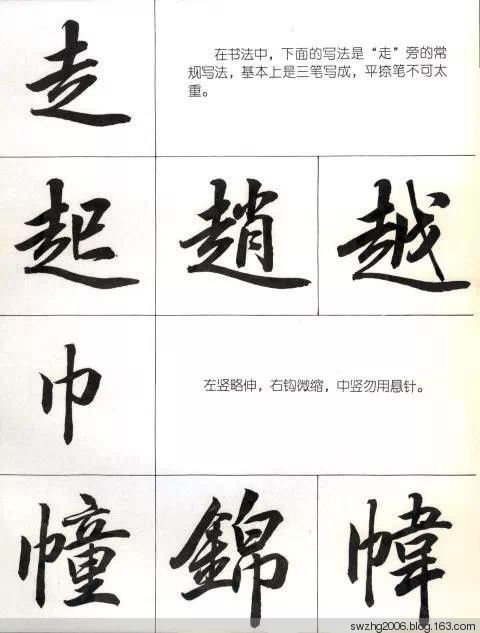 走
在书法中，下面的写法是“走”旁的常
规写法，基本上是三笔写成，平捺笔不可太
重。
起 趙 越
巾
左竖略伸，右钩微缩，中竖勿用悬针。
幢 錦 幃
swzhg2006.blog.163.com